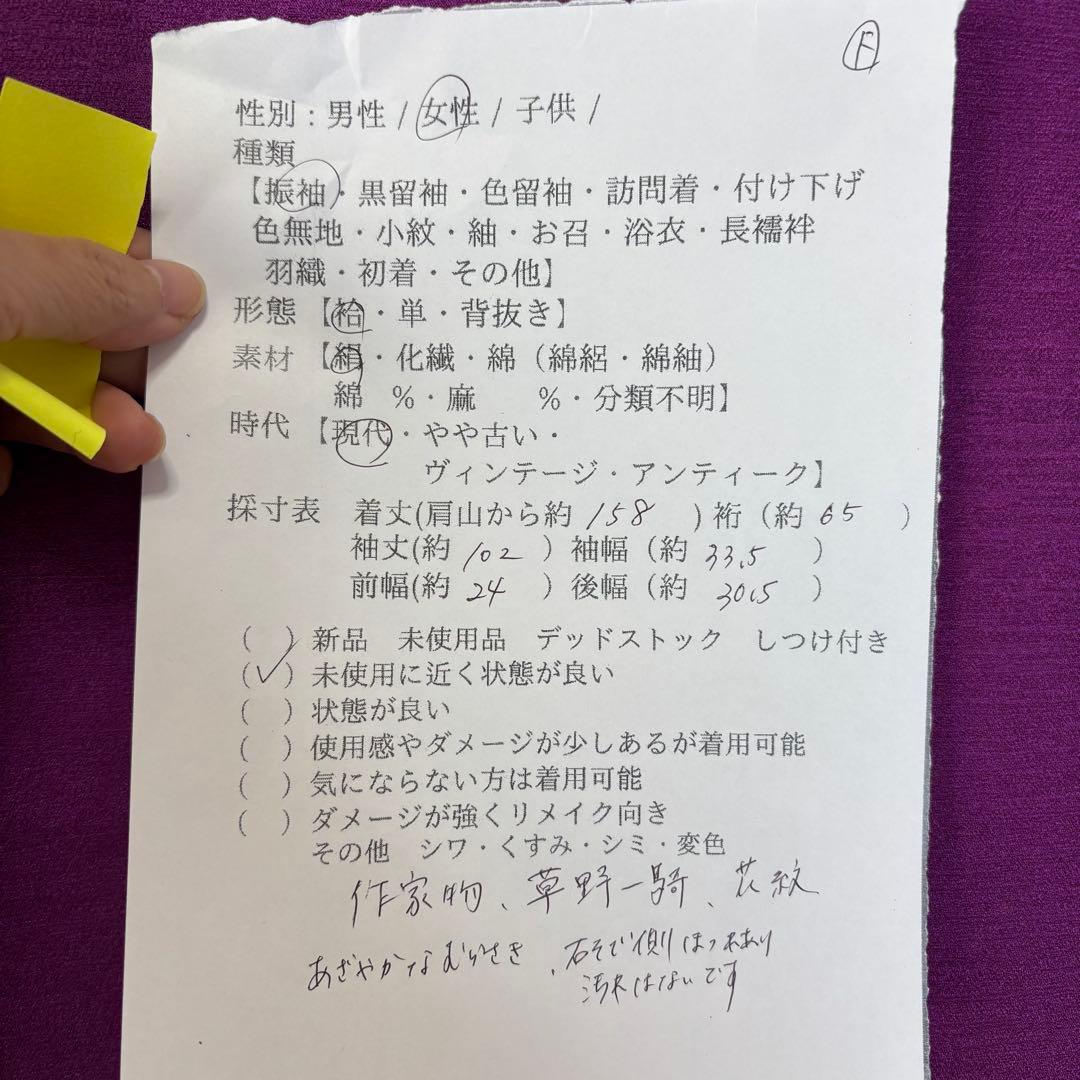 F
性別：男性 / 女性 / 子供 /
種類
【振袖・黒留袖・色留袖・訪問着・付け下げ
色無地・小紋・紬・お召・浴衣・長襦袢
羽織・初着・その他】
形態【袷・単・背抜き】
素材【絹・化繊・綿（綿絽・綿紬）
綿　%・麻　　%・分類不明】
時代【現代・やや古い・
ヴィンテージ・アンティーク】
採寸表　着丈(肩山から約 158 ) 裄（約 65 ）
袖丈(約 102 ）袖幅（約 33.5 ）
前幅(約 24 ）後幅（約 30.5 ）
（　）新品　未使用品　デッドストック　しつけ付き
（✓）未使用に近く状態が良い
（　）状態が良い
（　）使用感やダメージが少しあるが着用可能
（　）気にならない方は着用可能
（　）ダメージが強くリメイク向き
その他　シワ・くすみ・シミ・変色
作家物、草野一騎、花紋
あざやかなむらさき、右そで側ほつれあり
汚れはないです